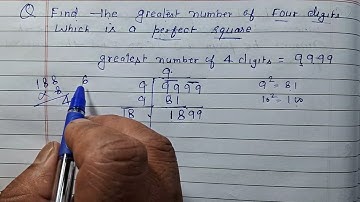 Q Find the greatest number of Four digits
which is a perfect square
greatest number of 4 digits = 9999
9
188 6
9 9999 9² = 81
8
9 81 10² = 100
4
18 1899